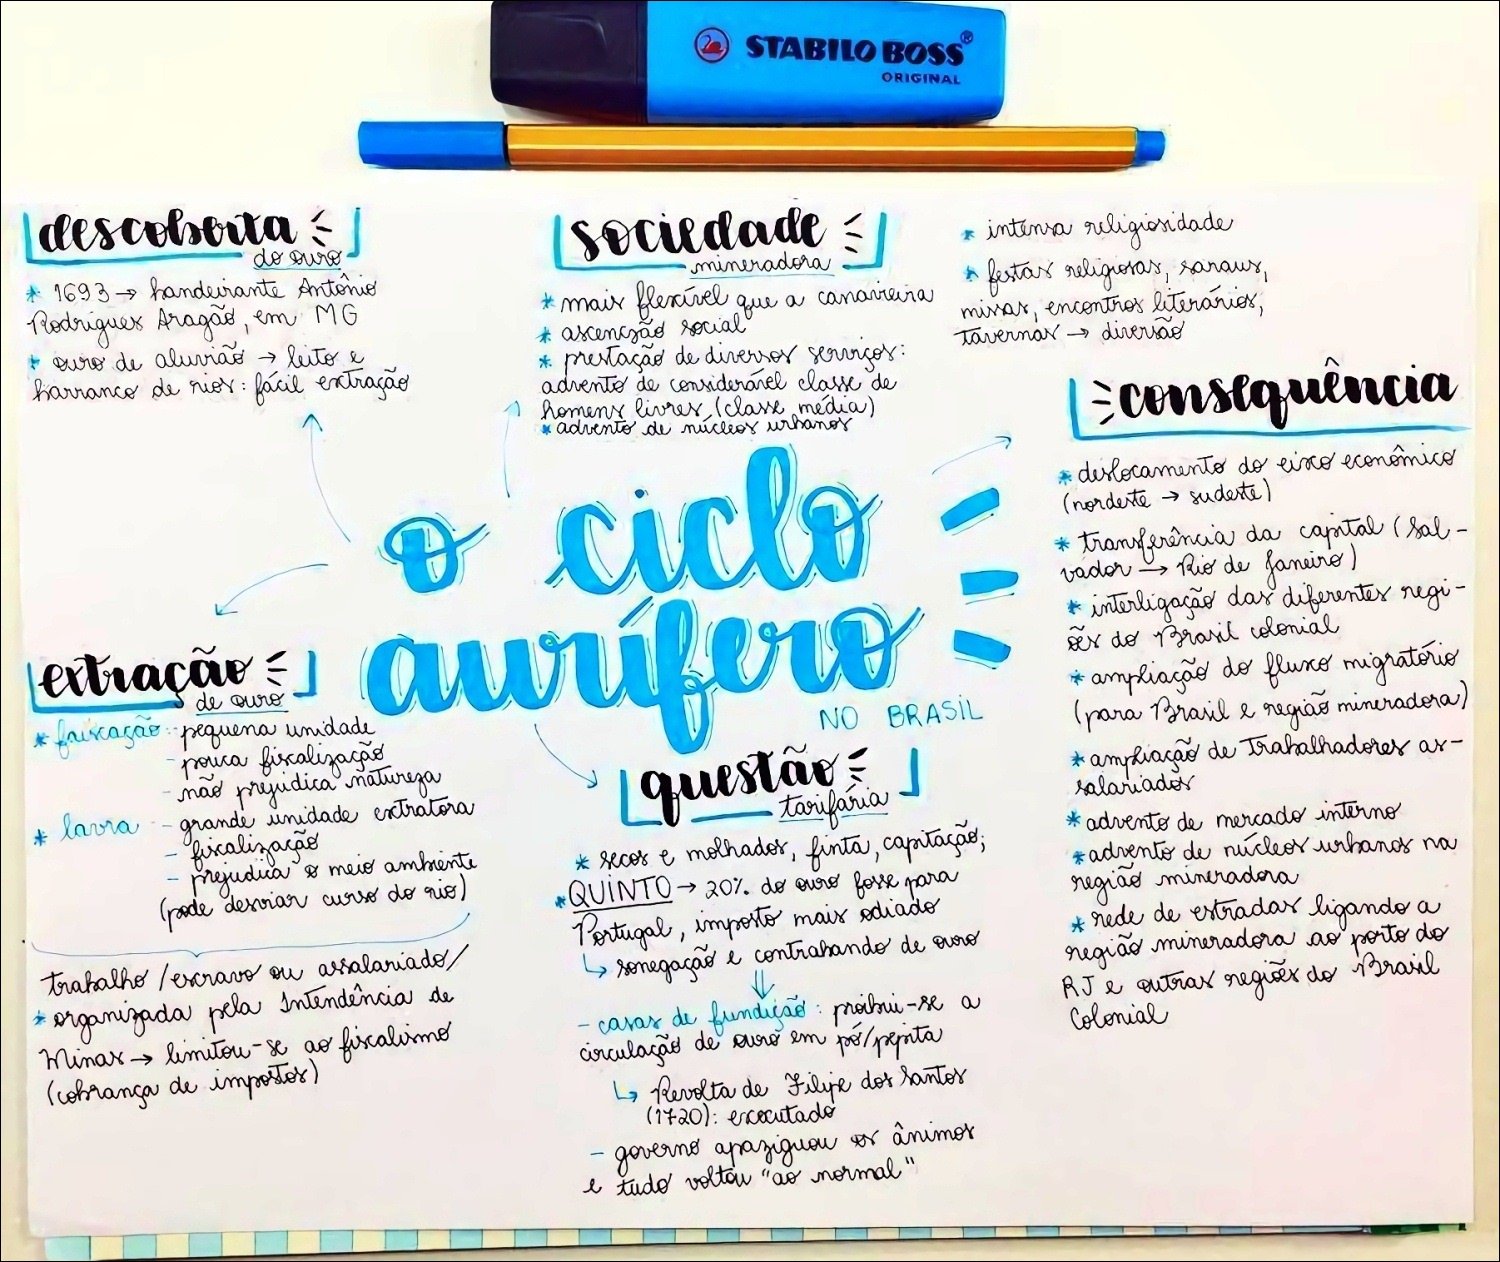 STABILO BOSS®
ORIGINAL
descoberta
do ouro
* 1693 → bandeirante Antônio
Rodrigues Aragão, em MG
* ouro de aluvião → leito e
barranco de rios: fácil extração
sociedade
mineradora
* mais flexível que a canavieira
* ascenção social
* prestação de diversos serviços:
advento de considerável classe de
homens livres (classe média)
* advento de núcleos urbanos
* intensa religiosidade
* festas religiosas, saraus,
missas, encontros literários,
tavernas → diversão
consequência
* deslocamento do eixo econômico
(nordeste → sudeste)
* transferência da capital (Sal-
vador → Rio de Janeiro)
* interligação das diferentes regi-
ões do Brasil colonial
* ampliação do fluxo migratório
(para Brasil e região mineradora)
* ampliação de trabalhadores as-
salariados
* advento de mercado interno
* advento de núcleos urbanos na
região mineradora
* rede de estradas ligando a
região mineradora ao porto do
RJ e outras regiões do Brasil
Colonial
o ciclo
aurífero
NO BRASIL
extração
de ouro
* faiscação: - pequena unidade
- pouca fiscalização
- não prejudica natureza
* lavra - grande unidade extratora
- fiscalização
- prejudica o meio ambiente
(pode desviar curso do rio)
trabalho /escravo ou assalariado/
* organizada pela Intendência de
Minas → limitou-se ao fiscalismo
(cobrança de impostos)
questão
tarifária
* secos e molhados, finta, capitação;
* QUINTO → 20% do ouro fosse para
Portugal, imposto mais odiado
↳ sonegação e contrabando de ouro
⇓
- casas de fundição: proibiu-se a
circulação de ouro em pó/pepita
↳ Revolta de Filipe dos Santos
(1720): executado
- governo apaziguou os ânimos
e tudo voltou "ao normal"